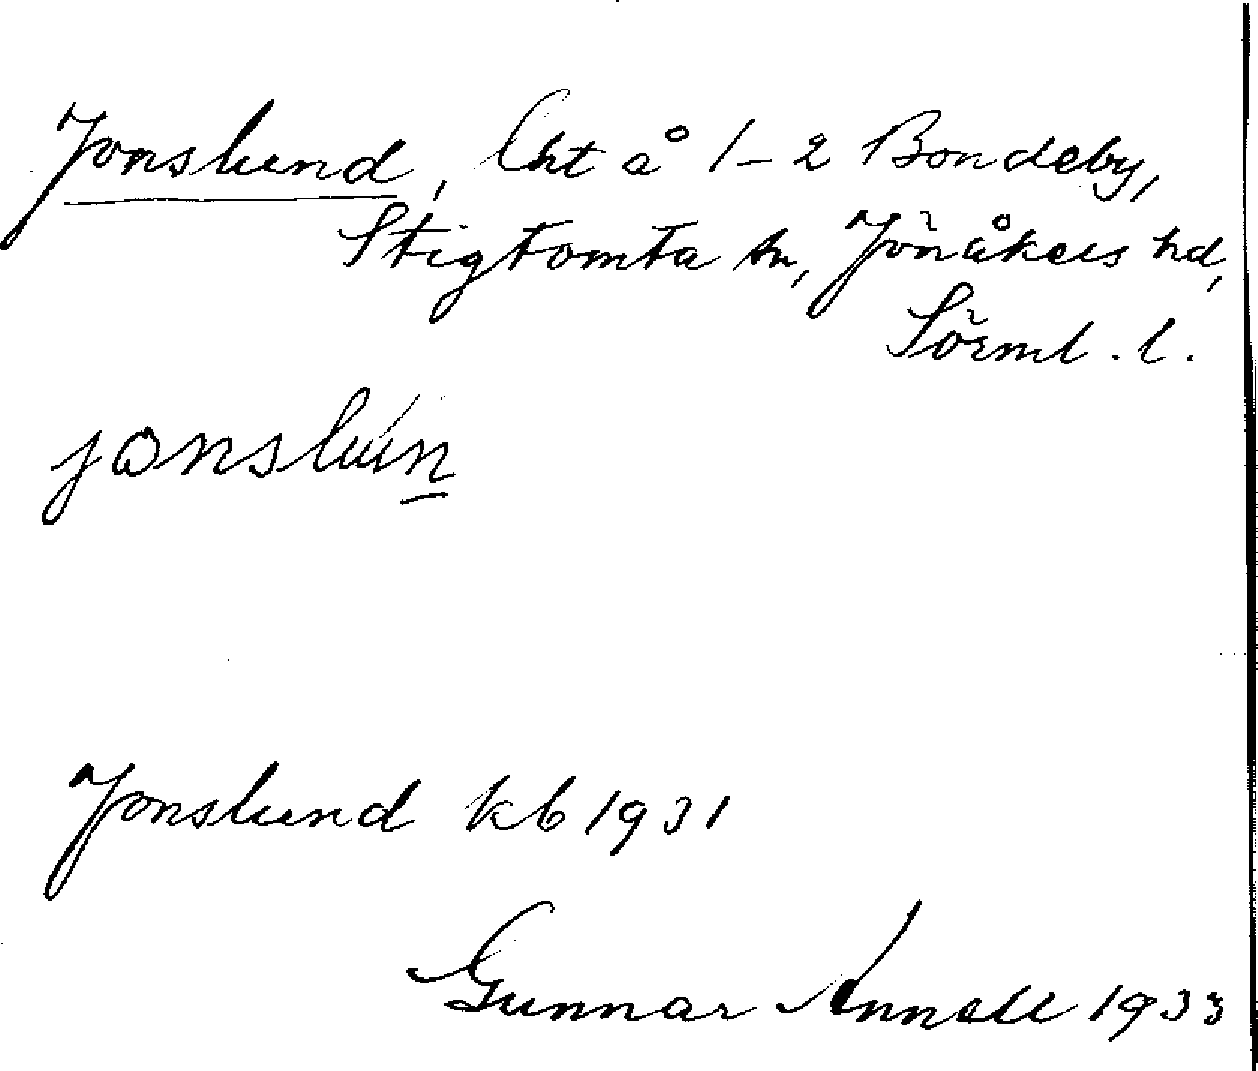 Jonslund, Lht å 1-2 Bondeby,
Stigtomta sn, Jönåkers hd,
Sörml. l.
jonslún
Jonslund kb 1931
Gunnar Annell 1933